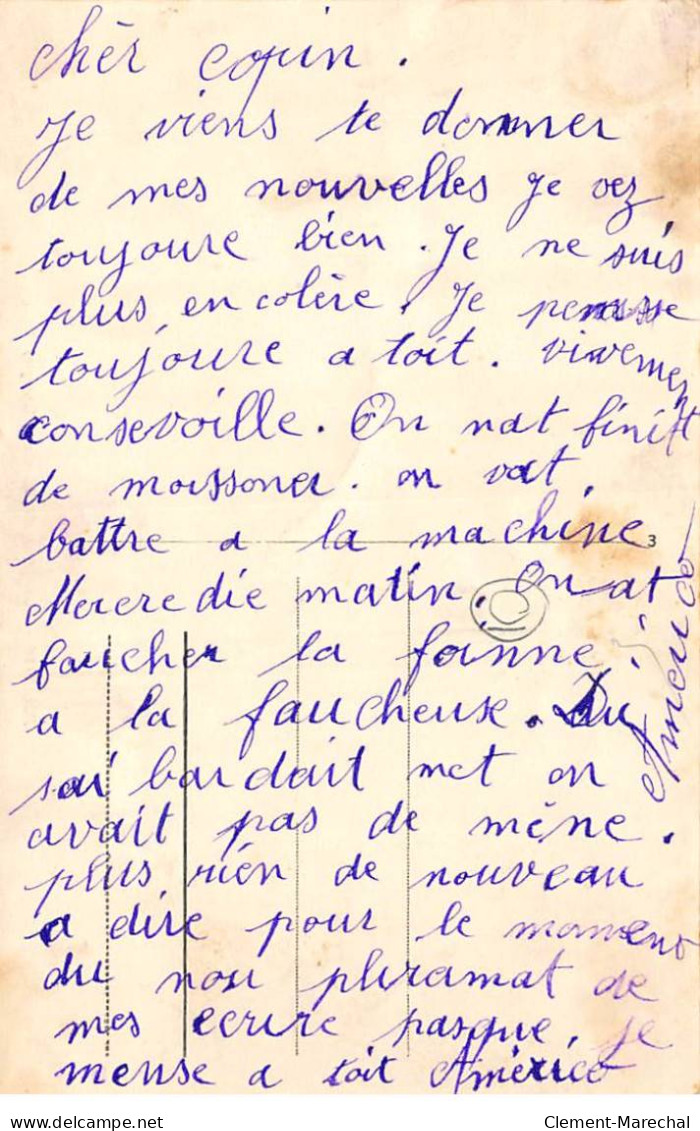 chèr copin.
Je viens te donner
de mes nouvelles Je vez
toujoure bien. Je ne suis
plus en colère, Je pensse
toujoure a toit. vivement
consevoille. On nat finit
de moissoner. on vat
battre a la machine 3
Merere die matin. On at
faucher la fanne
a la faucheuse. Du
sai bardait met on
avait pas de mène.
plus rièn de nouveau
a dire pour le moment
du nou pluramat de
mes ecrire pasque, je
mense a toit Américo
Americo
Delcampe.net
Clement-Marechal